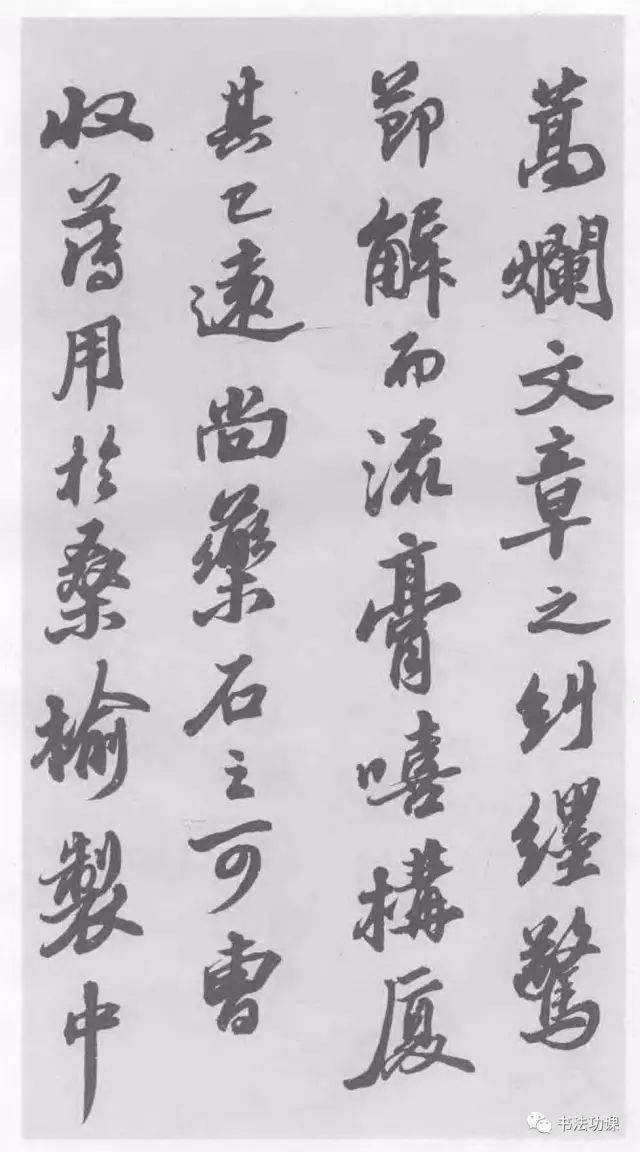 蒿爛文章之糾纆驚
節解而流膏嘻構厦
其已遠尚藥石之可曹
收薄用於桑榆製中
书法功课